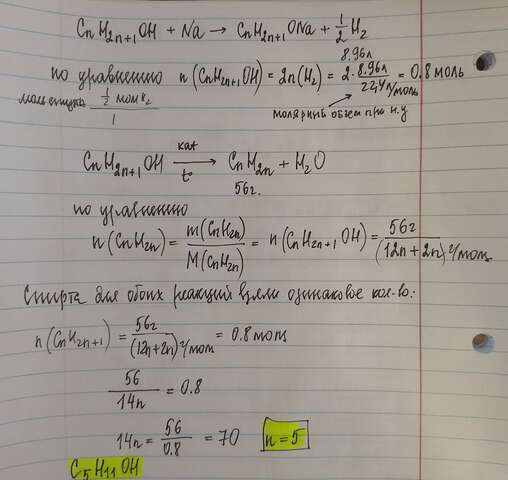 CnH2n+1OH + Na → CnH2n+1ONa + 1/2 H2
8.96л
по уравнению n(CnH2n+1OH) = 2n(H2) = 2·8.96л / 22,4л/моль = 0.8 моль
1/2 моль H2
1
молярный объем при н.у
CnH2n+1OH kat t° → CnH2n + H2O
56г.
по уравнению
n(CnH2n) = m(CnH2n) / M(CnH2n) = n(CnH2n+1OH) = 56г / (12n+2n) г/моль
Спирта для обоих реакций взяли одинаковое кол-во:
n(CnH2n+1) = 56г / (12n+2n) г/моль = 0.8 моль
56 / 14n = 0.8
14n = 56 / 0.8 = 70 n=5
C5H11OH